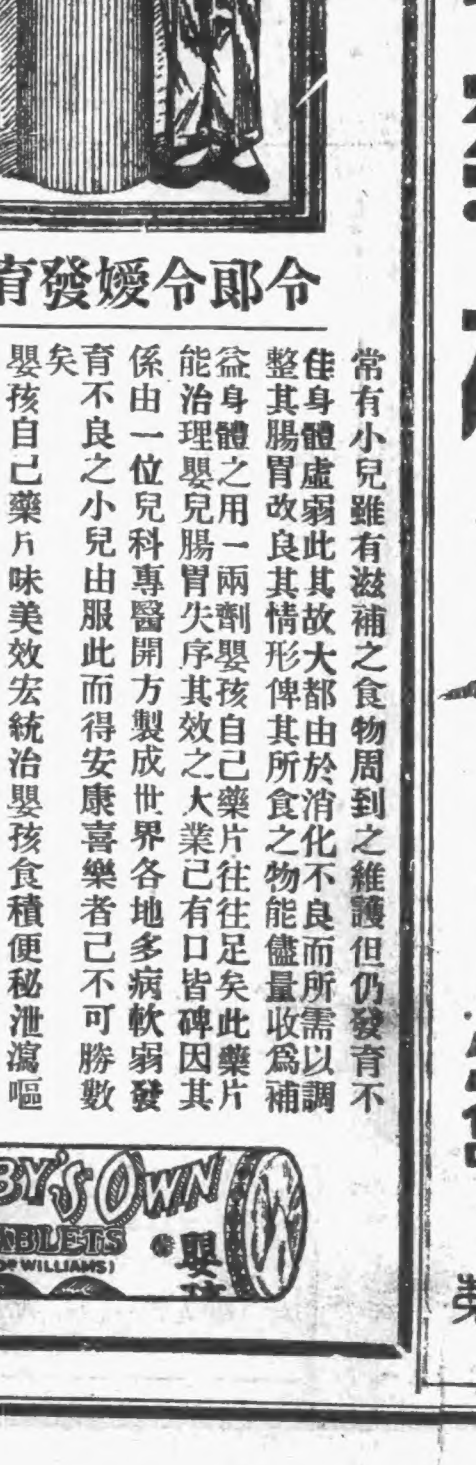 令郎令嬡發育
常有小兒雖有滋補之食物周到之維護但仍發育不
佳身體虛弱此其故大都由於消化不良而所需以調
整其腸胃改良其情形俾其所食之物能儘量收爲補
益身體之用一兩劑嬰孩自己藥片往往足矣此藥片
能治理嬰兒腸胃失序其效之大業已有口皆碑因其
係由一位兒科專醫開方製成世界各地多病軟弱發
育不良之小兒由服此而得安康喜樂者已不可勝數
矣
嬰孩自己藥片味美效宏統治嬰孩食積便秘泄瀉嘔
BY'S OWN
ABLETS
WILLIAMS)
嬰孩